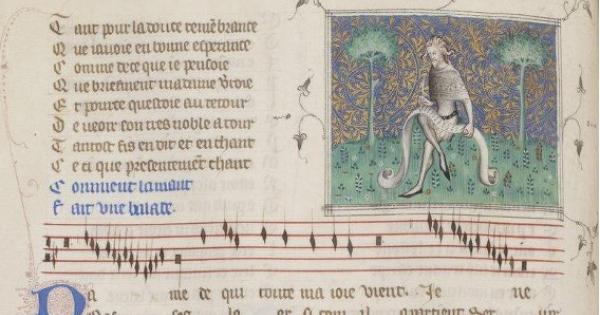 Tant pour la douce remēbrance
Que iauoie en bonne esperance
Comme de ce que ie pensoie
Que briefment madame vroie
Et pource questoie au retour
De veoir son tres noble atour
Tantost fis en dit et en chant
Ce ci que presentemēt chant
Comment lamant
fait vne balade.
Da me de qui toute ma ioie vient. Je ne